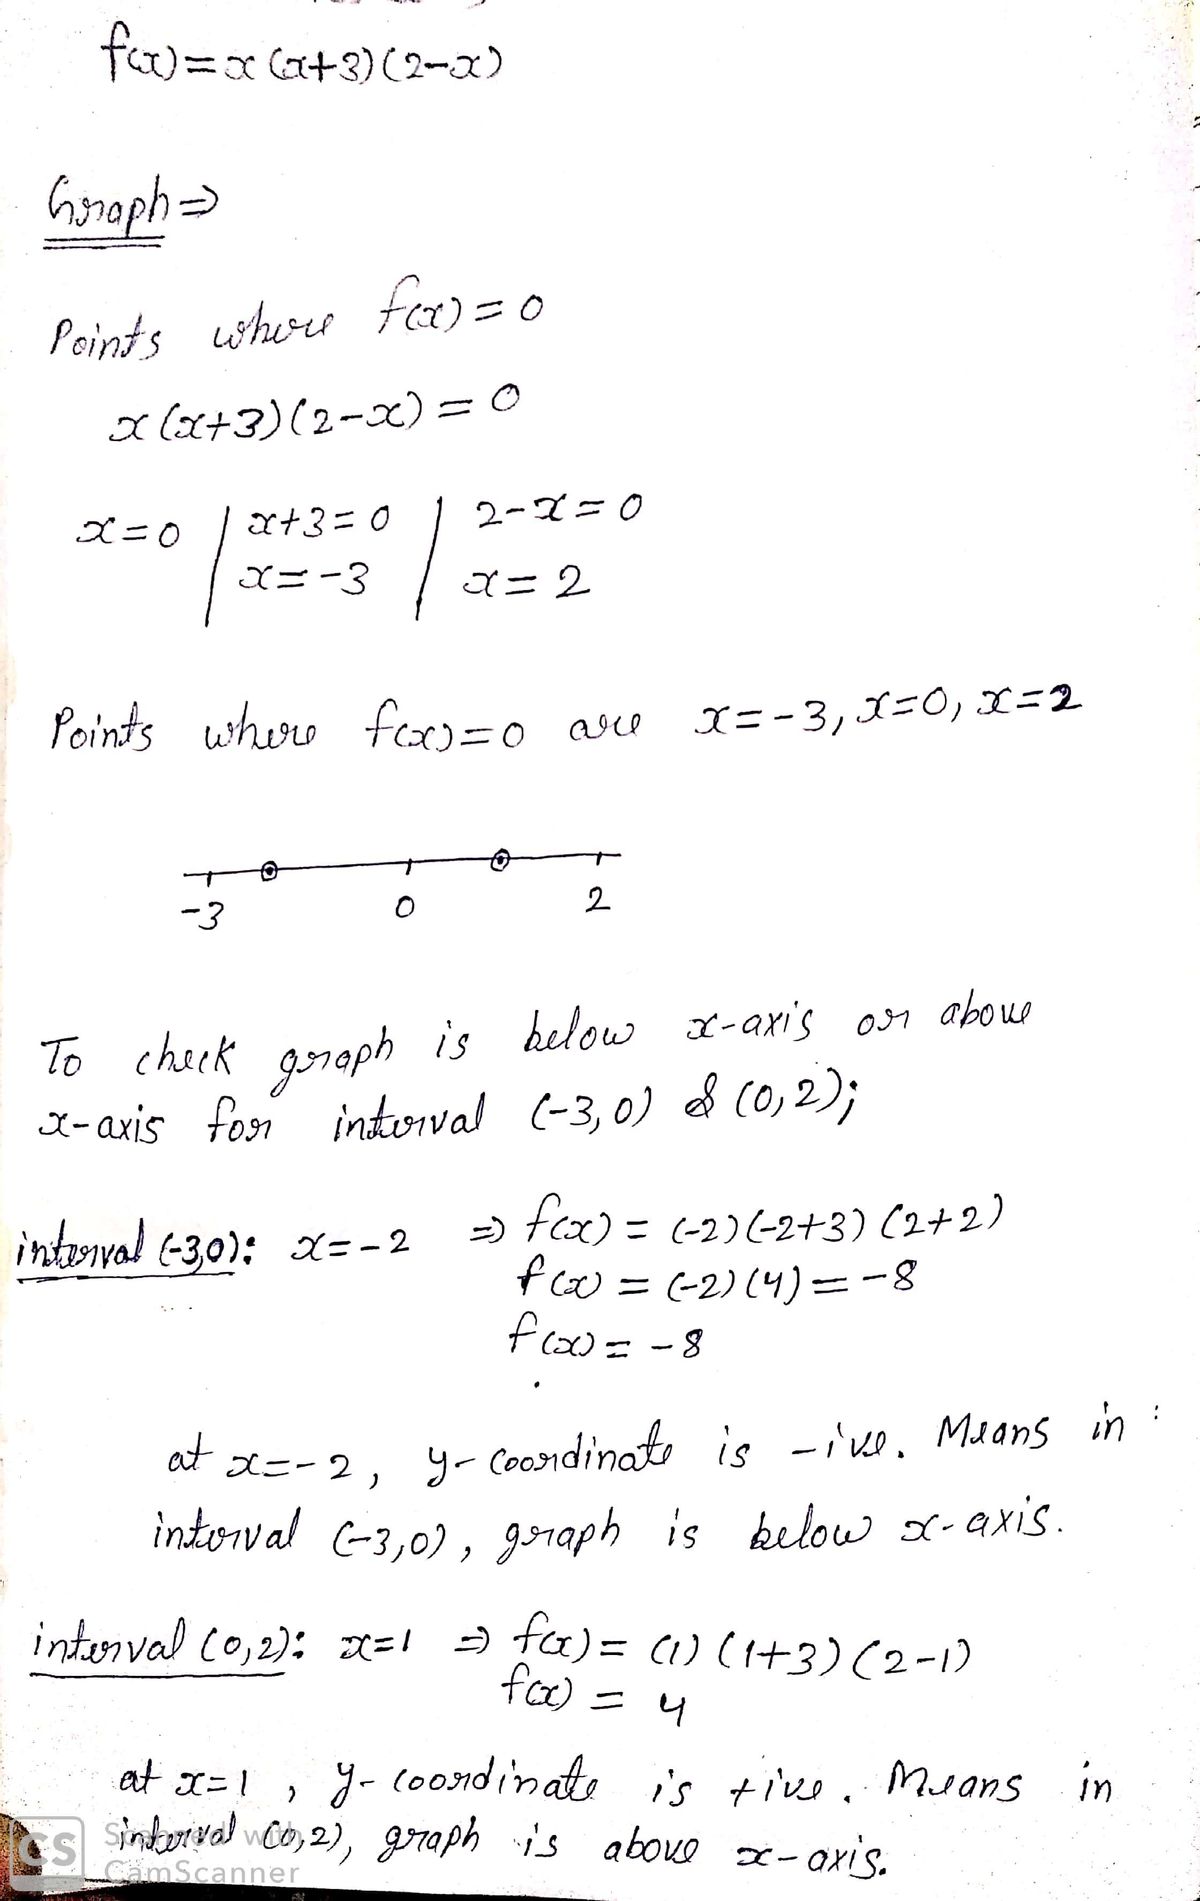 f(x)=x(x+3)(2-x)
Graph ⇒
Points where f(x)=0
x(x+3)(2-x)=0
x=0 | x+3=0 | 2-x=0
x=-3 | x=2
Points where f(x)=0 are x=-3, x=0, x=2
-3 0 2
To check graph is below x-axis or above
x-axis for interval (-3,0) & (0,2);
interval (-3,0): x=-2 ⇒ f(x) = (-2)(-2+3)(2+2)
f(x) = (-2)(4) = -8
f(x) = -8
at x=-2, y-coordinate is -ive. Means in
interval (-3,0), graph is below x-axis.
interval (0,2): x=1 ⇒ f(x) = (1)(1+3)(2-1)
f(x) = 4
at x=1, y-coordinate is +ive. Means in
interval (0,2), graph is above x-axis.
CS Scanned with
CamScanner